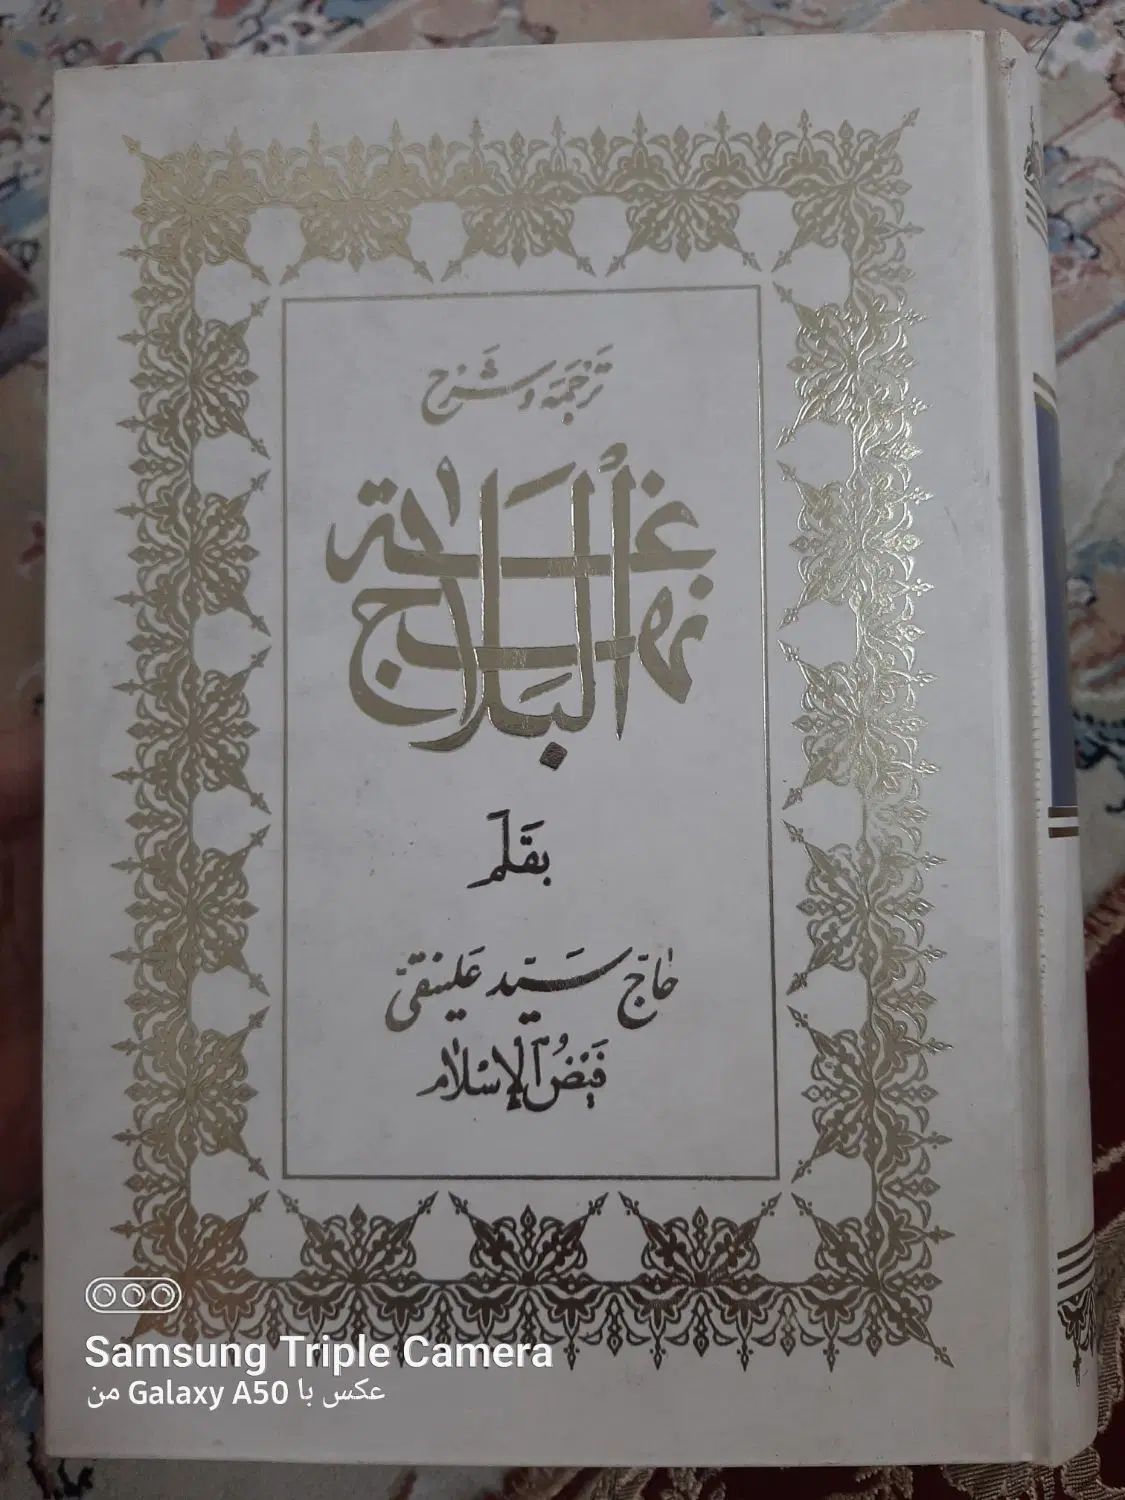 ترجمه و شرح
نهج البلاغة
بقلم
حاج سید علینقی
فیض الإسلام
Samsung Triple Camera
عکس با Galaxy A50 من